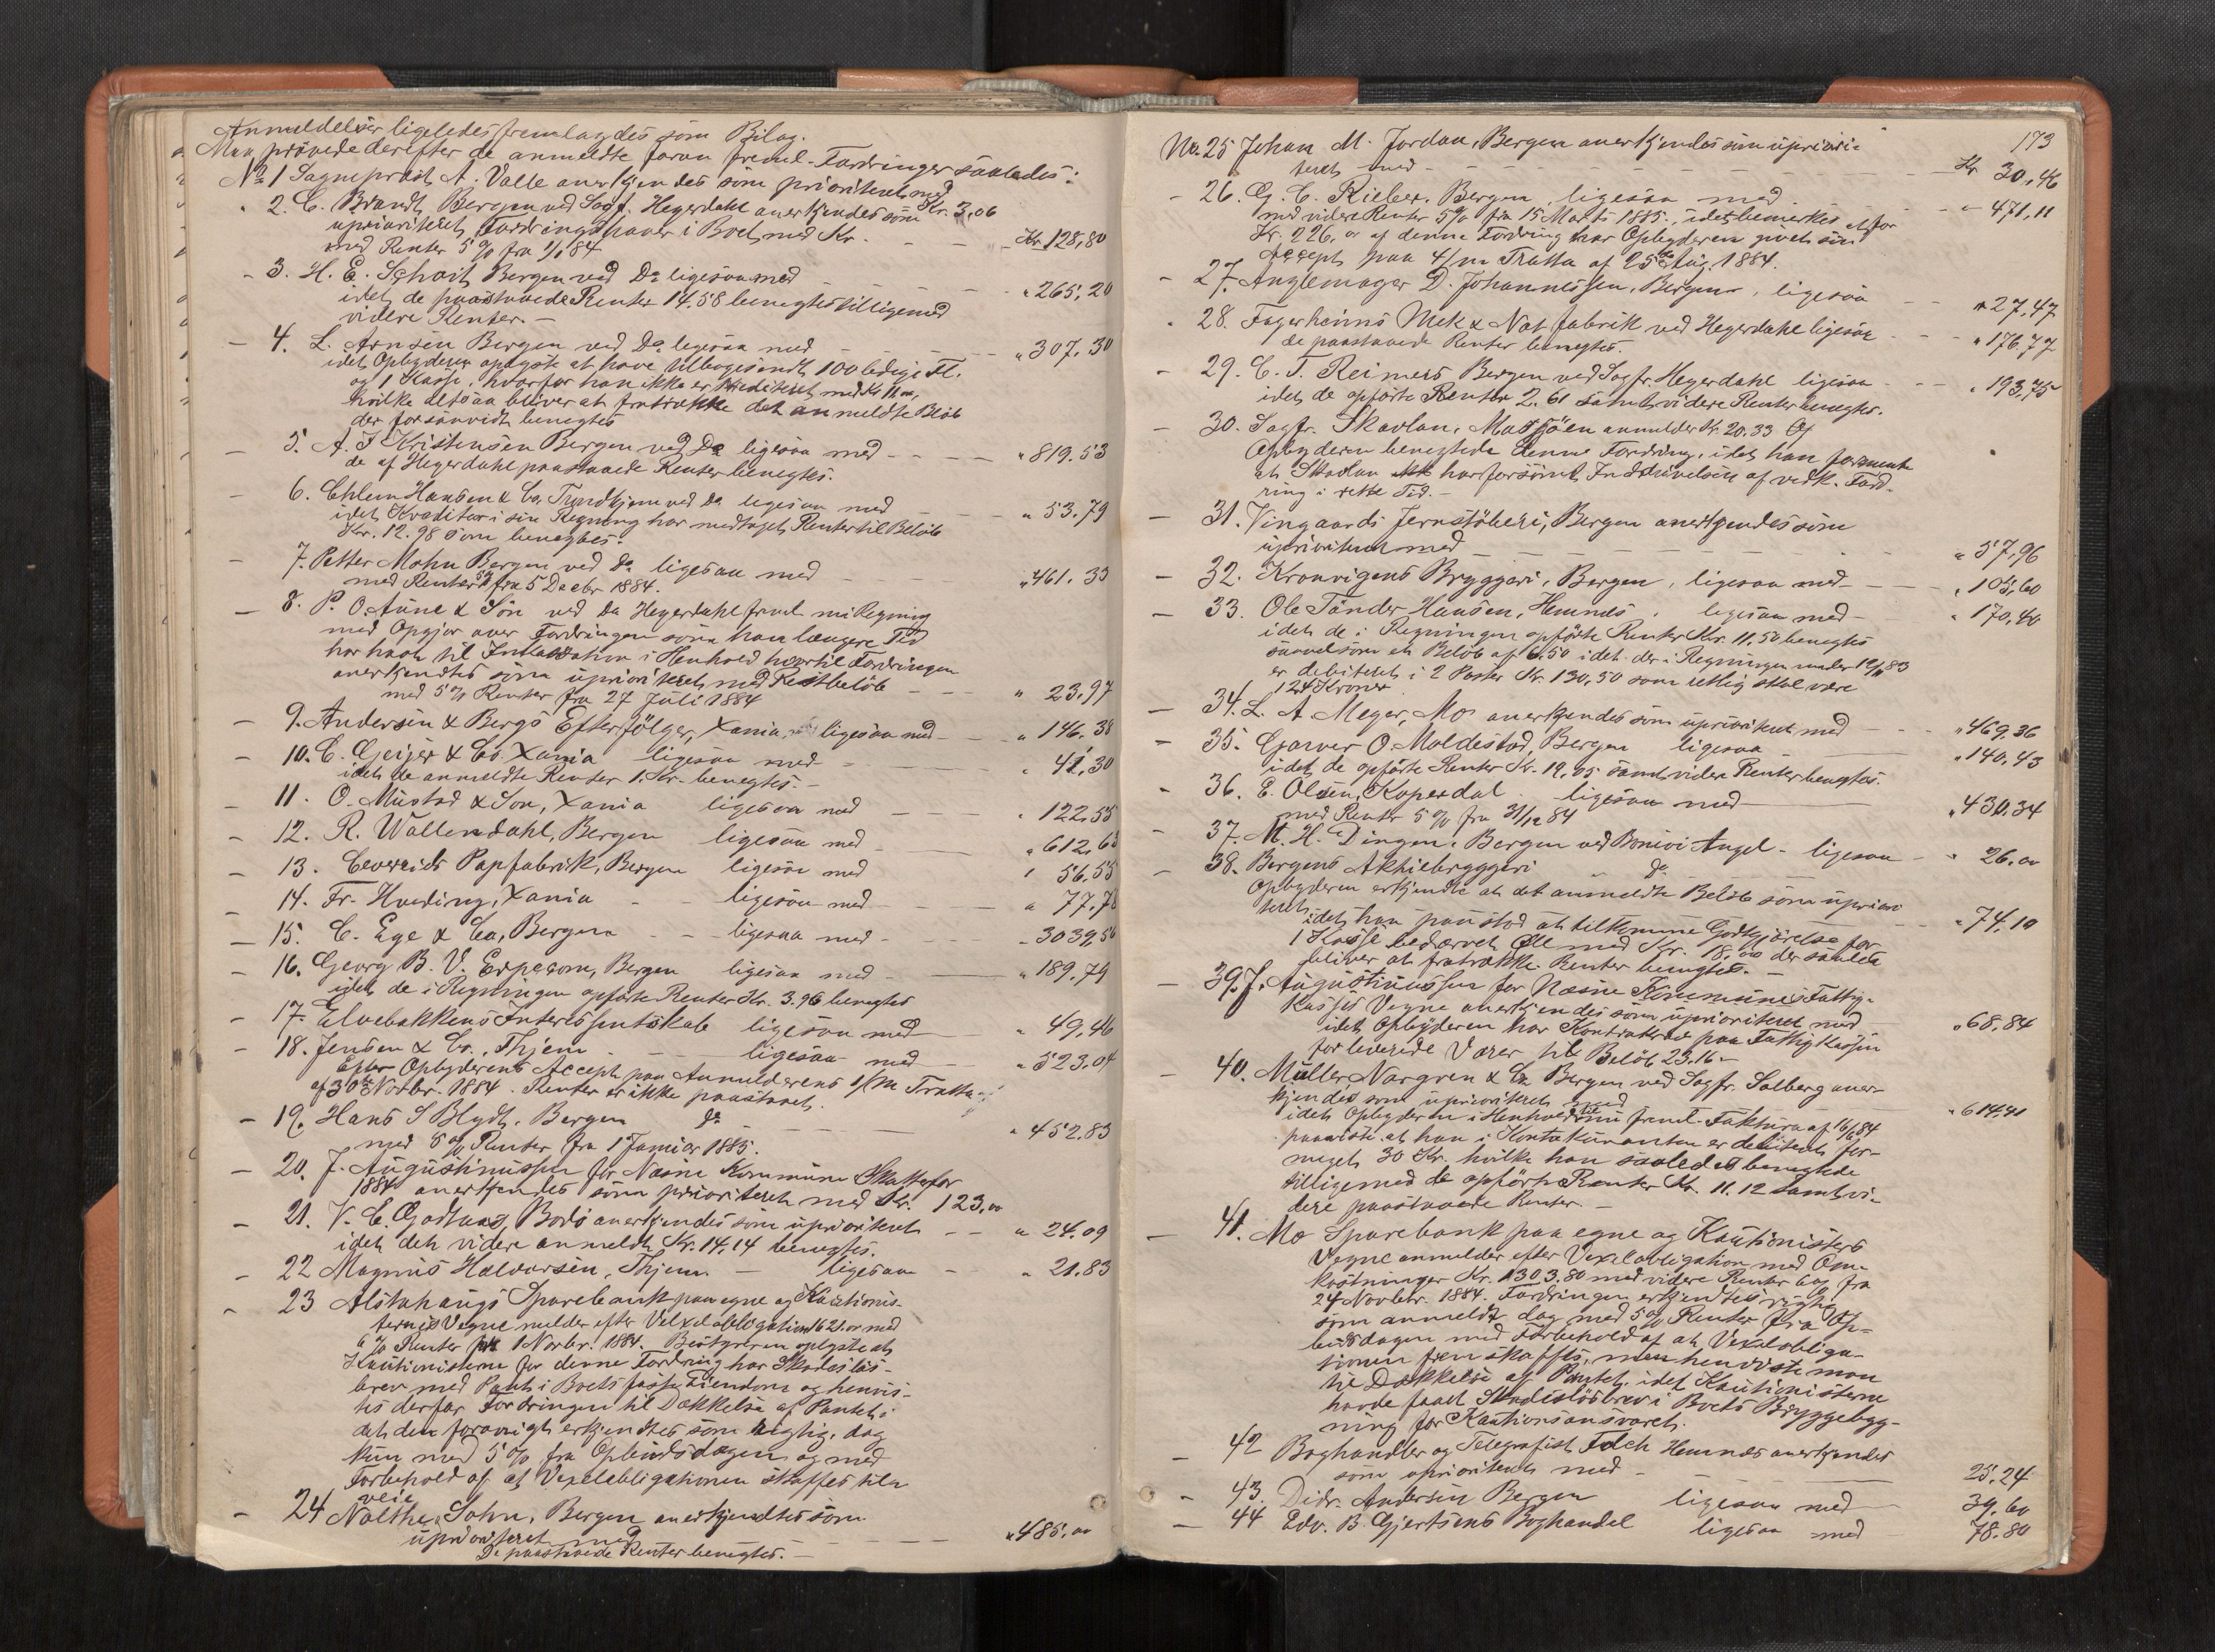 Anmeldelser ligeledes fremlagdes som Bilag.
Man prøvede derefter de anmeldte foran freml. Fordringer saaledes:
No 1 Sogneprest A. Valle anerkjendes som prioriteret med Kr. 3,06
" 2. C. Brandt Bergen ved Sagf. Hegerdahl anerkjendes som
uprioriteret Fordringshaver i Boet med Kr. - - - Kr 128,80
med Renter 5 % fra 1/1 84
- 3. H. E. Schoit Bergen ved Do ligesaa med - - - " 265,20
idet de paastaaede Renter 14.58 benegtes tilligemed
videre Renter. -
- 4. L. Arnsen Bergen ved Do ligesaa med - - - " 307,30
idet Opbyderen oplyste at have tilbagesendt 100 ledige Fl.
og 1 Kasse, hvorfor han ikke er krediteret med Kr 11,00,
hvilke altsaa bliver at fratrække det anmeldte Beløb
der forsaavidt benegtes
- 5. A. J Kristensen Bergen ved Do ligesaa med - - - " 819.53
de af Hegerdahl paastaaede Renter benegtes.
- 6. Chlem Hansen & Co, Trondhjem ved Do ligesaa med - - - " 53.79
idet Kreditor i sin Regning har medtaget Renter til Beløb
Kr. 12.98 som benegtes.
- 7. Petter Mohn Bergen ved Do ligesaa med - " 461.33
med Renter 5% fra 5 Decbr 1884.
- 8. P. O. Aune & Søn ved Do Hegerdahl freml. ni Regning
med Opgjør over Fordringen som han længere Tid
har havt til Inkassation i Henhold hvortil Fordringen
anerkjendtes som uprioriteret med Restbeløb - - - " 23,97
med 5 % Renter fra 27 Juli 1884
- 9. Andersen & Bergs Efterfølger, Xania, ligesaa med - - " 146.38
- 10. C. Geijer & Co. Xania ligesaa med - - - " 41,30
idet de anmeldte Renter 1. Kr. benegtes. -
- 11. O. Mustad & Søn, Xania ligesaa med - - - " 122.55
- 12. R. Wallendahl, Bergen ligesaa med - - - " 612,68
- 13. Ceverids Papfabrik, Bergen ligesaa med " 56.55
- 14. Fr. Hveding, Xania - - ligesaa med - - - " 77,78
- 15. C. Ege & Co, Bergen - - ligesaa med - - - 3039,56
- 16. Georg B. V. Erpecom, Bergen ligesaa med - - " 189.79
idet de i Regningen opførte Renter Kr. 3.96 benegtes
- 17. Elvebakkens Interessentskab ligesaa med - " 49,46
- 18. Jensen & Co., Thjem - - ligesaa med - " 523.04
efter Opbyderens Accept paa Anmelderens 1/m Tratta
af 30te Novbr. 1884. Renter er ikke paastaaet.
- 19. Hans S Blydt, Bergen do - - - " 452.83
med 5 % Renter fra 1 Januar 1885.
- 20. J. Augustinussen for Næsne Kommune Skatter for
1884 anerkjendes som prioriteret med Kr. 123,00
- 21. V. C. Godtaas, Bodø anerkjendes som uprioriteret - - " 24.09
idet det videre anmeldte Kr. 14,14 benegtes.
- 22 Magnus Halvorsen, Thjem. - ligesaa - " 21.83
- 23 Alstahaugs Sparebank paa egne og Kautionis-
ternes Vegne melder efter Vexelobligation 1621.00 med
6 % Renter fra 1 Novbr. 1884. Bestyreren oplyste at
Kautionisterne for denne Fordring har Skadesløs-
brev med Pant i Boets faste Eiendom og henvis-
tes derfor Fordringen til Dækkelse af Pantet i
det den forøvrigt erkjendtes som rigtig, dog
kun med 5 % fra Opbudsdagen og med
Forbehold af at Vexelobligationen skaffes tile
veie
- 24 Nolthe & Sohn, Bergen anerkjendtes som
uprioriteret med - - - " 485,00
De paastaaede Renter benegtes. -
173
No. 25 Johan M. Jordan, Bergen anerkjendes som upriori-
teret med - - - Kr 30,46
- 26. G. C. Rieber, Bergen, ligesaa med - - " 471,11
med videre Renter 5% fra 15 Marts 1885., idet bemerkes at for
Kr. 226,00 af denne Fordring har Opbyderen givet sin
Accept paa 4/m Tratta af 25de Aug. 1884.
- 27. Anglemager D. Johannessen, Bergen, ligesaa " 27,47
" 28. Fagerheims Mek & Not fabrik ved Hegerdahl ligesaa - - " 176,77
de paastaaede Renter benegtes.
- 29. C. T. Reimers Bergen ved Sagfr. Hegerdahl ligesaa - - " 193,75
idet de opførte Renter 2.61 samt videre Renter benegtes.
- 30. Sagfr. Skavlan, Mosjøen anmelder Kr. 20.33
Opbyderen benegtede denne Fordring, idet han formente
at Skavlan har forsømt Inddrivelsen af vedk. Ford-
ring i rette Tid. -
- 31. Vingaards Jernstøberi, Bergen anerkjendes som
uprioriteret med - - - " 57,96
- 32. Kronvigens Bryggeri, Bergen, ligesaa med - " 105,60
- 33. Ole Tønder Hansen, Hemnæs, ligesaa med - " 170,40
idet de i Regningen opførte Renter Kr. 11,50 benegtes
saavelsom et Beløb af 6.50 idet der i Regningen under 12/11 83
er debiteret i 2 Poster Kr. 130,50 som rettelig skal være
124 Kroner.
- 34. L. A Meyer, Mo anerkjendes som uprioriteret med - - " 469,36
- 35. Garver O. Moldestad, Bergen ligesaa - " 140,43
idet de opførte Renter Kr. 19,05 samt videre Renter benegtes.
- 36. E. Olsen, Kopesdal. ligesaa med - " 430,34
med Renter 5 % fra 31/12 84
- 37. M. H. Dingen, Bergen ved Bonivi Angel - ligesaa - " 26.00
- 38. Bergens Aktiebryggeri do
Opbyderen erkjendte at det anmeldte Beløb som upriori
teret - " 74,10
idet han paastod at tilkomme Godtgjørelse for
1 Kasse bedærvet Øl med Kr. 18,00 der saaledes
bliver at fratrække. Renter benegtes. -
- 39. J. Augustinussen for Næsne Kommunes Fattig-
kasses Vegne anerkjendes som uprioriteret med - " 68,84
idet Opbyderen har Kontrakrav paa Fattigkassen
for leverede Varer til Beløb 23.16 -
- 40. Müller Norgren & Co Bergen ved Sagfr. Solberg aner-
kjendes som uprioriteret med - " 614,41
idet Opbyderen i Henhold til nu freml. Faktura af 16/8 84
paaviste at han i Kontokuranten er debiteret for-
meget 30 Kr. hvilke han saaledes benegtede
tilligemed de opførte Renter Kr. 11.12 samt vi-
dere paastaaede Renter. -
- 41. Mo Sparebank paa egne og Kautionisters
Vegne anmelder efter Vexelobligation med Om-
kostninger Kr. 1303.80 med videre Renter 6 % fra
24 Novbr. 1884. Fordringen erkjendtes rigtig
som anmeldt, dog med 5 % Renter fra Op-
budsdagen med Forbehold af at Vexelobliga-
tionen fremskaffes, men henviste man
til Dækkelse af Pantet, idet Kautionisterne
havde faaet Skadesløsbrev i Boets Bryggebyg-
ning for Kautionsansvaret.
- 42 Boghandler og Telegrafist Falch Hemnæs anerkjendes
som uprioriteret med - - - 25.24
- 43. Didr. Andersen Bergen ligesaa med - 39,60
- 44 Edv. B. Gjertsens Boghandel ligesaa med 78.80